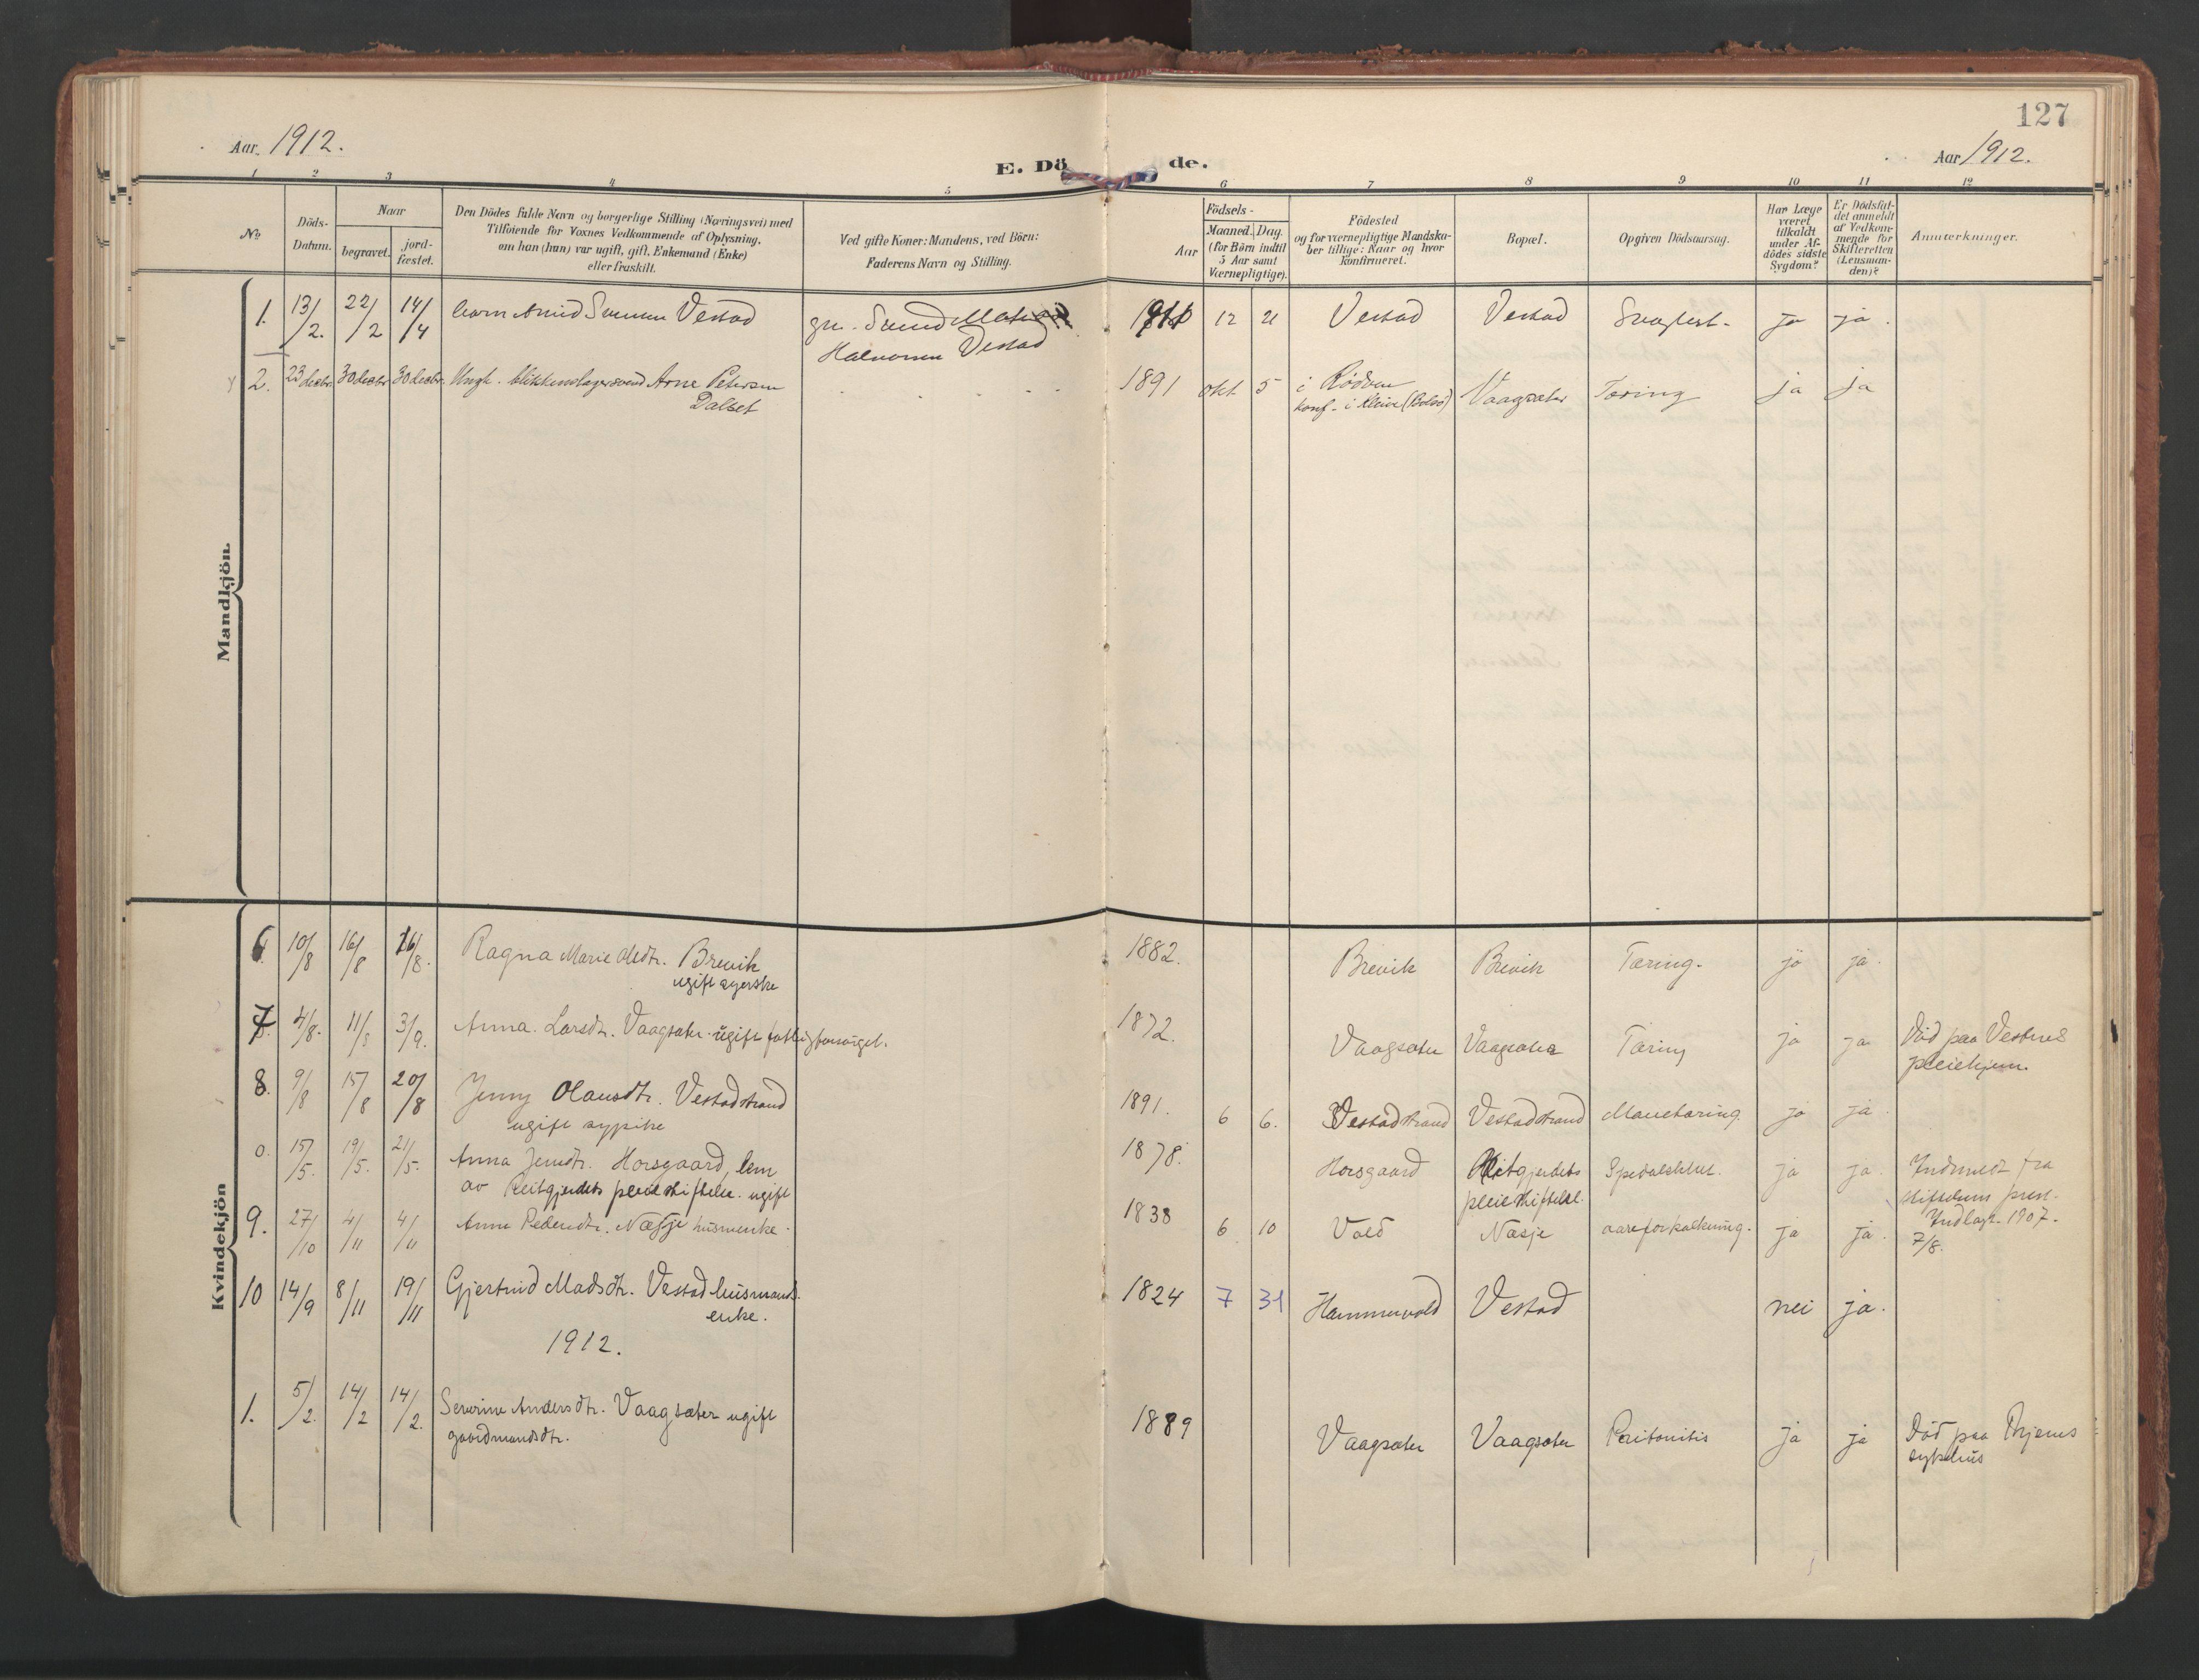 127
Aar 1912.
E. Döde.
Aar 1912.
1 2 3 4 5 6 7 8 9 10 11 12
No.
Döds-
Datum.
Naar
begravet.
jord-
fæstet.
Den Dödes fulde Navn og borgerlige Stilling (Næringsvei) med
Tilføiende for Voxnes Vedkommende af Oplysning,
om han (hun) var ugift, gift, Enkemand (Enke)
eller fraskilt.
Ved gifte Koner: Mandens, ved Börn:
Faderens Navn og Stilling.
Födsels-
Aar
Maaned. Dag.
(for Börn indtil
5 Aar samt
Værnepligtige).
Födested
og for værnepligtige Mandska-
ber tillige: Naar og hvor
konfirmeret.
Bopæl.
Opgiven Dödsaarsag.
Har Læge
været
tilkaldt
under Af-
dödes sidste
Sygdom?
Er Dödsfal-
det anmeldt
af Vedkom-
mende for
Skifteretten
(Lensman-
den)?
Anmærkninger.
Mandkjön.
1. 13/2. 22/2 14/4 barn Vestad gm. 12 21 Vestad Vestad ja ja.
Halvorsen Vestad
2. 23 decbr 30 decbr 30 decbr. Ungk. blikkenslagersvend Arne Petersen 1891 okt 5 i Rødven Vaagsæter Tæring ja ja
Dalset konf. i Kleive (Bolsö)
Kvindekjön
6. 10/8 16/8 16/8. Ragna Marie Olsdtr. Brevik 1882. Brevik Brevik Tæring. ja ja.
ugift syerske
7. 4/8. 11/8 3/9. Anna Larsdtr. Vaagsæter. ugift fattigforsörget. 1872. Vaagsæter Vaagsæter Tæring ja ja Död paa Vestnes
pleiehjem.
8. 9/8 15/8 20/8 Jenny Olausdtr. Vestadstrand 1891. 6 6. Vestadstrand Vestadstrand Mavetæring ja ja
ugift sypike
0. 15/5. 19/5. 21/5. Anna Jensdtr. Horsgaard, lem 1878. Horsgaard Reitgjerdets Spedalskhet. ja ja. Indmeldt fra
av Reitgjerdets pleiestiftelse. ugift pleiestiftelse. stiftelsens prest.
Indlagt 1907.
7/8.
9. 27/10 4/11 4/11 Anne Pedersdtr. Næsje husmenke. 1838 6 10 Vold Næsje aareforkalkning. ja ja.
10 14/9 8/11 19/11 Gjertrud Madsdtr. Vestad husmands 1824 7 31 Hammervold Vestad nei ja.
enke.
1912.
1. 5/2. 14/2 14/2. Severine Andersdtr. Vaagsæter ugift 1889 Vaagsæter Vaagsæter Peritonitis ja ja Död paa Bjerms
gaardmandsdtr. sykehus